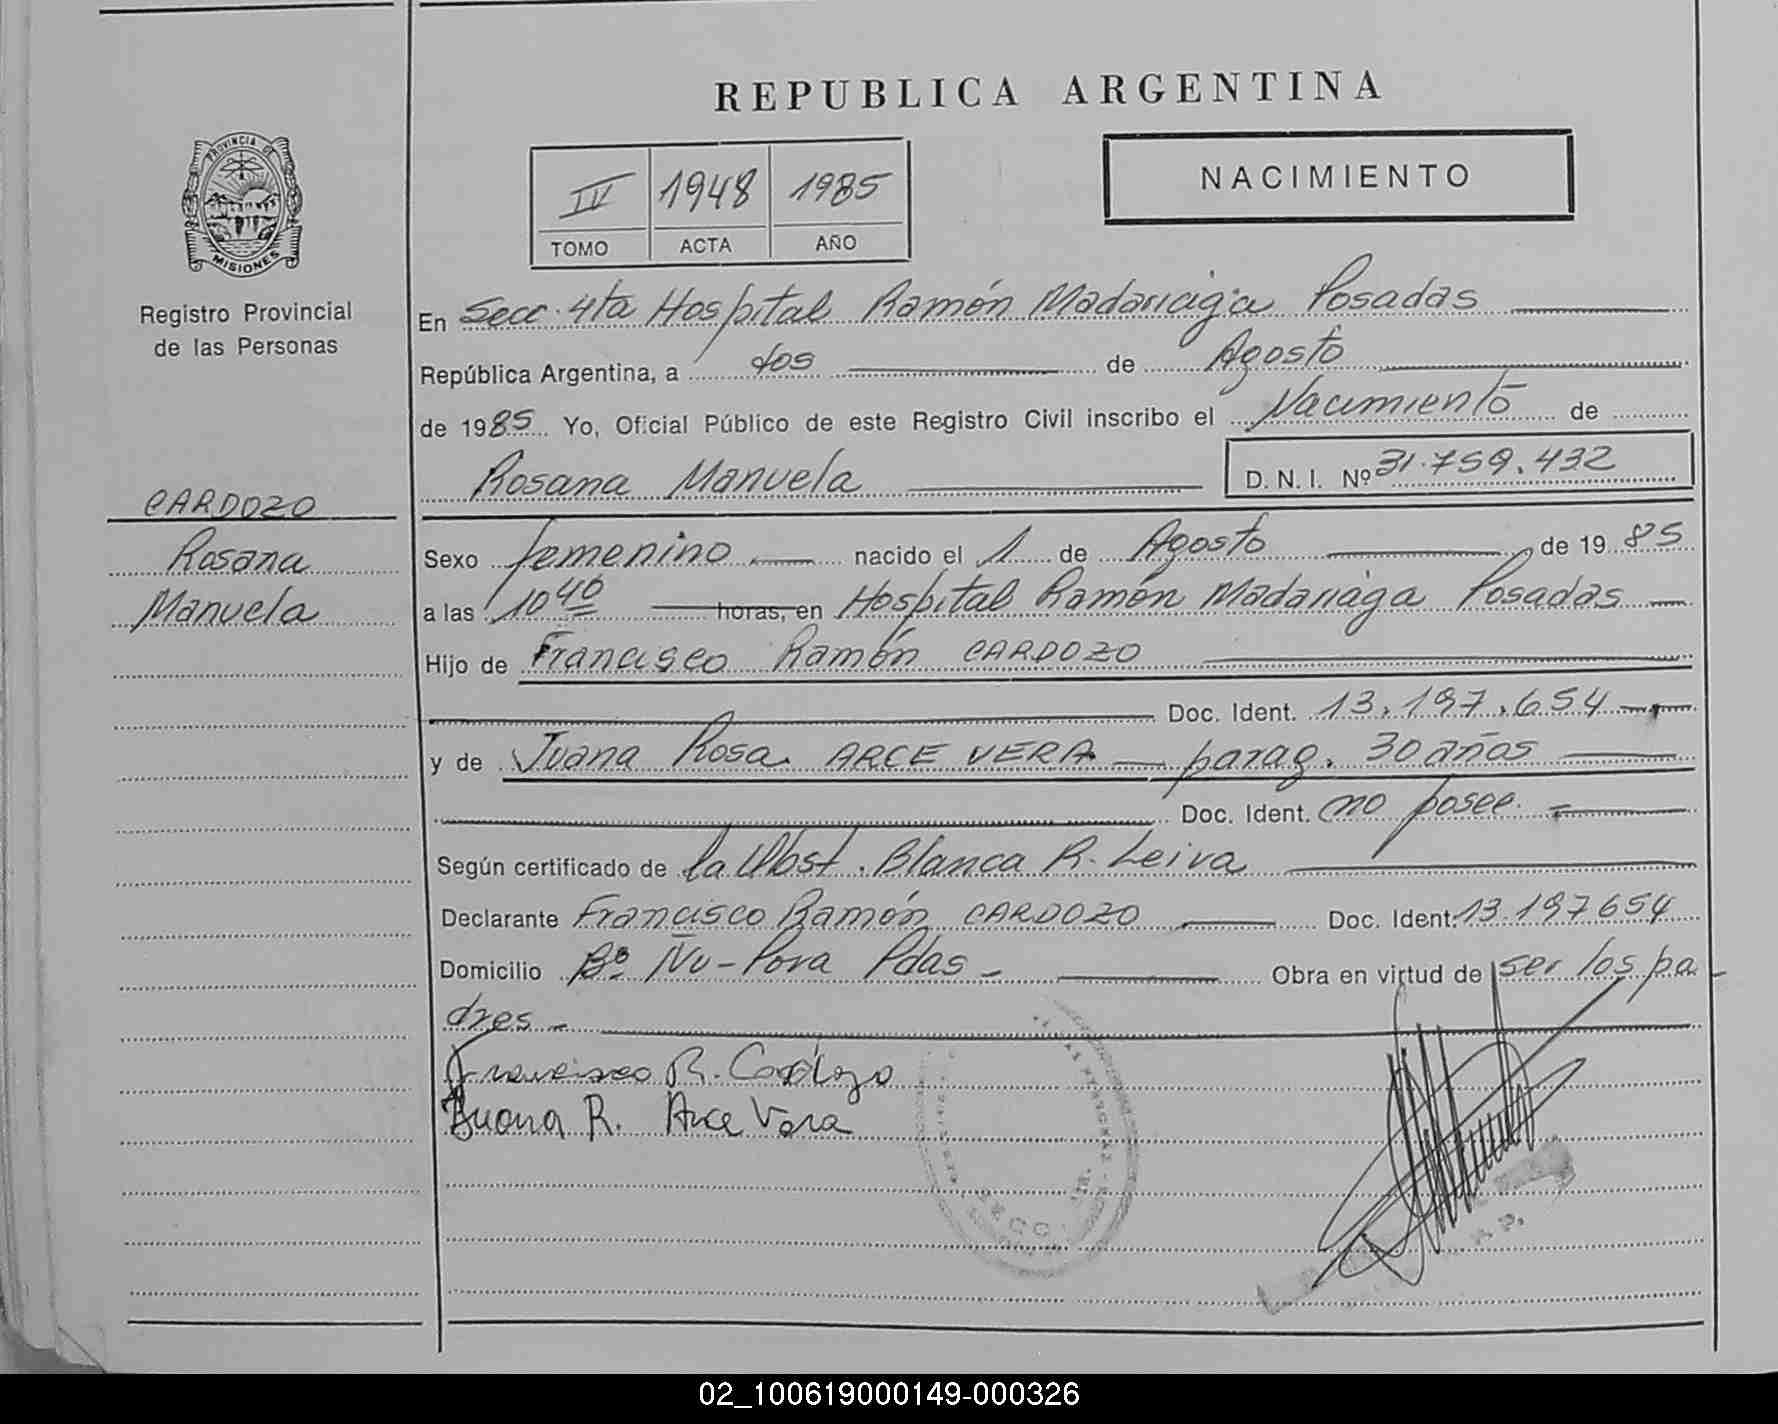 REPUBLICA ARGENTINA
PROVINCIA DE
MISIONES
Registro Provincial
de las Personas
CARDOZO
Rosana
Manuela
IV 1948 1985
TOMO ACTA AÑO
NACIMIENTO
En Secc. 4ta Hospital Ramón Madariaga Posadas
República Argentina, a dos de Agosto
de 1985 Yo, Oficial Público de este Registro Civil inscribo el Nacimiento de
Rosana Manuela D.N.I. Nº 31.759.432
Sexo femenino nacido el 1 de Agosto de 1985
a las 10 40 horas, en Hospital Ramón Madariaga Posadas
Hijo de Francisco Ramón CARDOZO
Doc. Ident. 13.197.654
y de Juana Rosa ARCE VERA — parag. 30 años
Doc. Ident. no posee.
Según certificado de la Obst. Blanca R. Leiva
Declarante Francisco Ramón CARDOZO Doc. Ident. 13.197654
Domicilio Bº Ñu-Pora Pdas - Obra en virtud de ser los pa
dres -
Francisco R. Cardozo
Juana R. Arce Vera
SECC
02_100619000149-000326